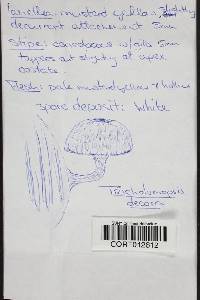 Lamellae: mustard yellow, slightly
decurrent attachment 5mm
Stipe: 5mm
tapers at slightly at apex.
costate.
Flesh: pale mustard yellow & hollow
spore deposit: White
Tricholomopsis
decora
CORT012612